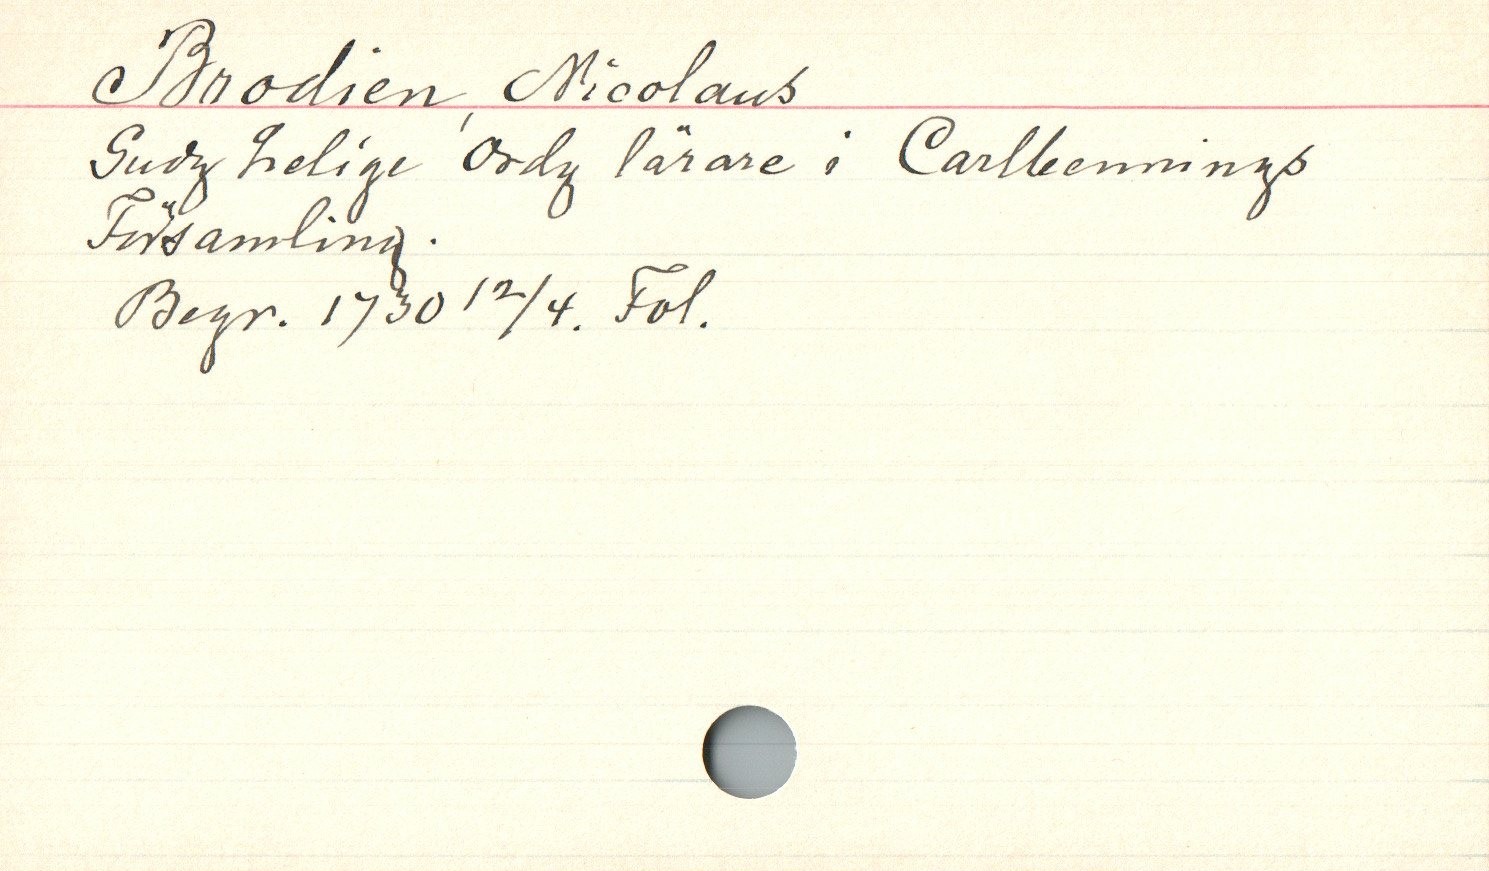 Brodien, Nicolaus
Gudz helige Ordz lärare i Carlbennings
Församling.
Begr. 1730 12/4. Fol.